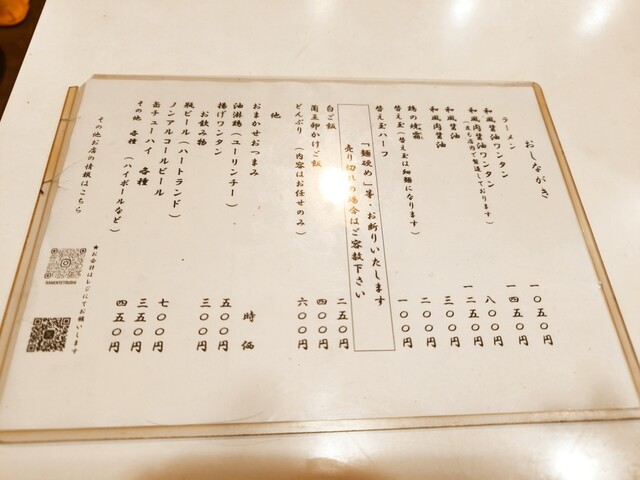 おしながき
ラーメン
和風醤油ワンタン 一〇五〇円
和風肉醤油ワンタン 一四五〇円
(皮も店内で製造しております)
和風醤油 八〇〇円
和風肉醤油 一二五〇円
鶏の焼霜 三〇〇円
替え玉(替え玉は細麺になります) 二〇〇円
替え玉ハーフ 一〇〇円
「麺硬め」等・お断りいたします
売り切れの場合はご容赦下さい
白ご飯 二五〇円
蘭王卵かけご飯 四〇〇円
どんぶり(内容はお任せのみ) 六〇〇円
他
おまかせおつまみ 時価
油淋鶏(ユーリンチー) 五〇〇円
揚げワンタン 三〇〇円
お飲み物
瓶ビール(ハートランド)
ノンアルコールビール 七〇〇円
缶チューハイ 各種 三五〇円
その他 各種(ハイボールなど) 四五〇円
その他お店の情報はこちら
★お会計はレジにてお願いします